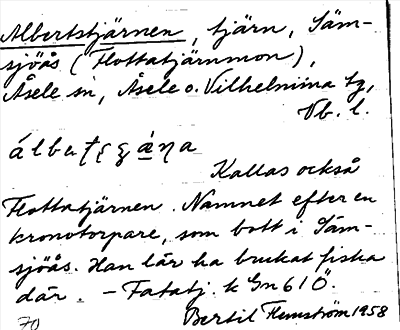 Albertstjärnen, tjärn, Säm-
sjöås (Flottatjärnmon),
Åsele sn, Åsele o. Vilhelmina tg,
Vb. l.
Kallas också
Flottatjärnen. Namnet efter en
kronotorpare, som bott i Säm-
sjöås. Han lär ha brukat fiska
där. – Fatatj. k Gn 61Ö.
Bertil Flemström 1958
70